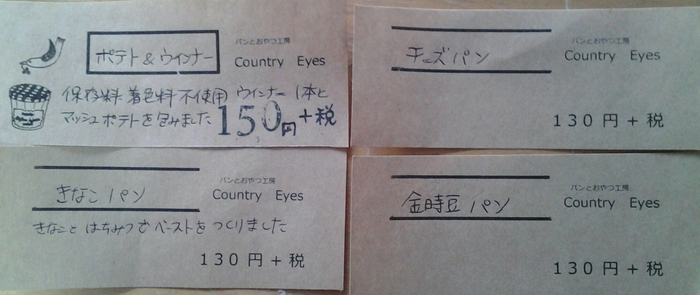 ポテト&ウインナー
パンとおやつ工房
Country Eyes
保存料着色料不使用 ウインナー1本と
マッシュポテトを包みました 150円+税
チーズパン
パンとおやつ工房
Country Eyes
130円+税
きなこパン
パンとおやつ工房
Country Eyes
きなことはちみつでペーストをつくりました
130円+税
金時豆パン
パンとおやつ工房
Country Eyes
130円+税